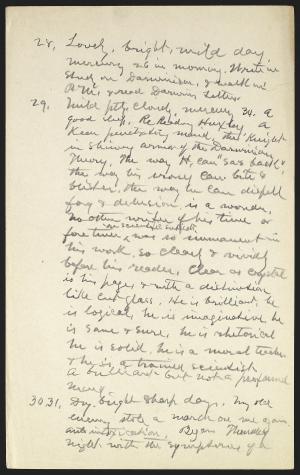 28, Lovely, bright, mild day,
mercury 26 in morning. Write on
Study on Darwinism, & health in
P.M., & read Darwin's Letters.
29, Mild, partly cloudy, mercury 30. a
good sleep. Re Reading Huxley, a
Keen penetrating mind, the Knight
in shining armor of the Darwinian
theory. The way H. can
the way his irony can bite &
blister, the way he can dispell
fog & delusion, is a wonder,
no other writer of his time or
on scientific subjects
fore time, was so immanent in
his work, so clearly & vividly
before his reader. Clear as crystal
is his page, & with a distinction
like cut glass. He is brilliant, he
is logical, he is imaginative he
is sane & sure, he is rhetorical
he is solid. he is a moral teacher
& he is a trained scientist.
A brilliant but not a profound
mind.
30.31, Dry, bright sharp days. My old
enemy stole a march on me again,
auto intoxication. Began Thursday
night with the symptoms of a